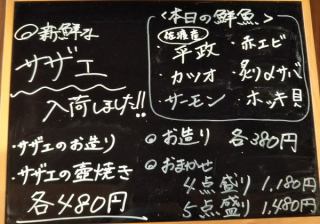 ◎新鮮な
サザエ
入荷しました!!
・サザエのお造り
・サザエの壺焼き
各480円
<本日の鮮魚>
佐渡産
・平政 ・赤エビ
・カツオ ・炙り〆サバ
・サーモン ・ホッキ貝
◎お造り 各380円
◎おまかせ
4点盛り 1,180円
5点盛り 1,480円